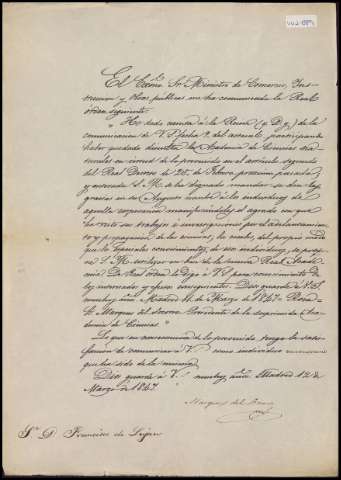 El Excmo. Sr. Ministro de Comercio, Ins-
truccion y Obras públicas me ha comunicado la Real
órden siguiente
"He dado cuenta á la Reina (q. D. g.) de la
comunicacion de V.S. fecha 9 del actual, participando
haber quedado disuelta la Academia de Ciencias Na-
turales en virtud de lo prevenido en el artículo segundo
del Real Decreto de 25 de Febrero proximo pasado, y
enterada S. M. se ha dignado mandar se den las
gracias en su Augusto nombre á los individuos de
aquella corporacion manifestándoles el agrado con que
ha visto sus trabajos é investigaciones por el adelantamien-
to y propagacion de la ciencia
los especiales conocimientos de sus individuos, se
S. M. en la nueva Real Acade-
mia. De Real órden lo digo á V.S. para conocimiento de
los interesados y fines consiguientes. Dios guarde á V.S.
muchos años. Madrid 11 de Marzo de 1847. Roca
Sr. Marques del Socorro Presidente de la suprimida Aca-
demia de Ciencias"
Lo que en consecuencia de lo prevenido tengo la satis-
faccion de comunicar á V. como individuo
que ha sido de la misma.
Dios guarde á V. muchos años. Madrid 12 de
Marzo de 1847
Marques del Socorro
Sr. D. Francisco de Luján